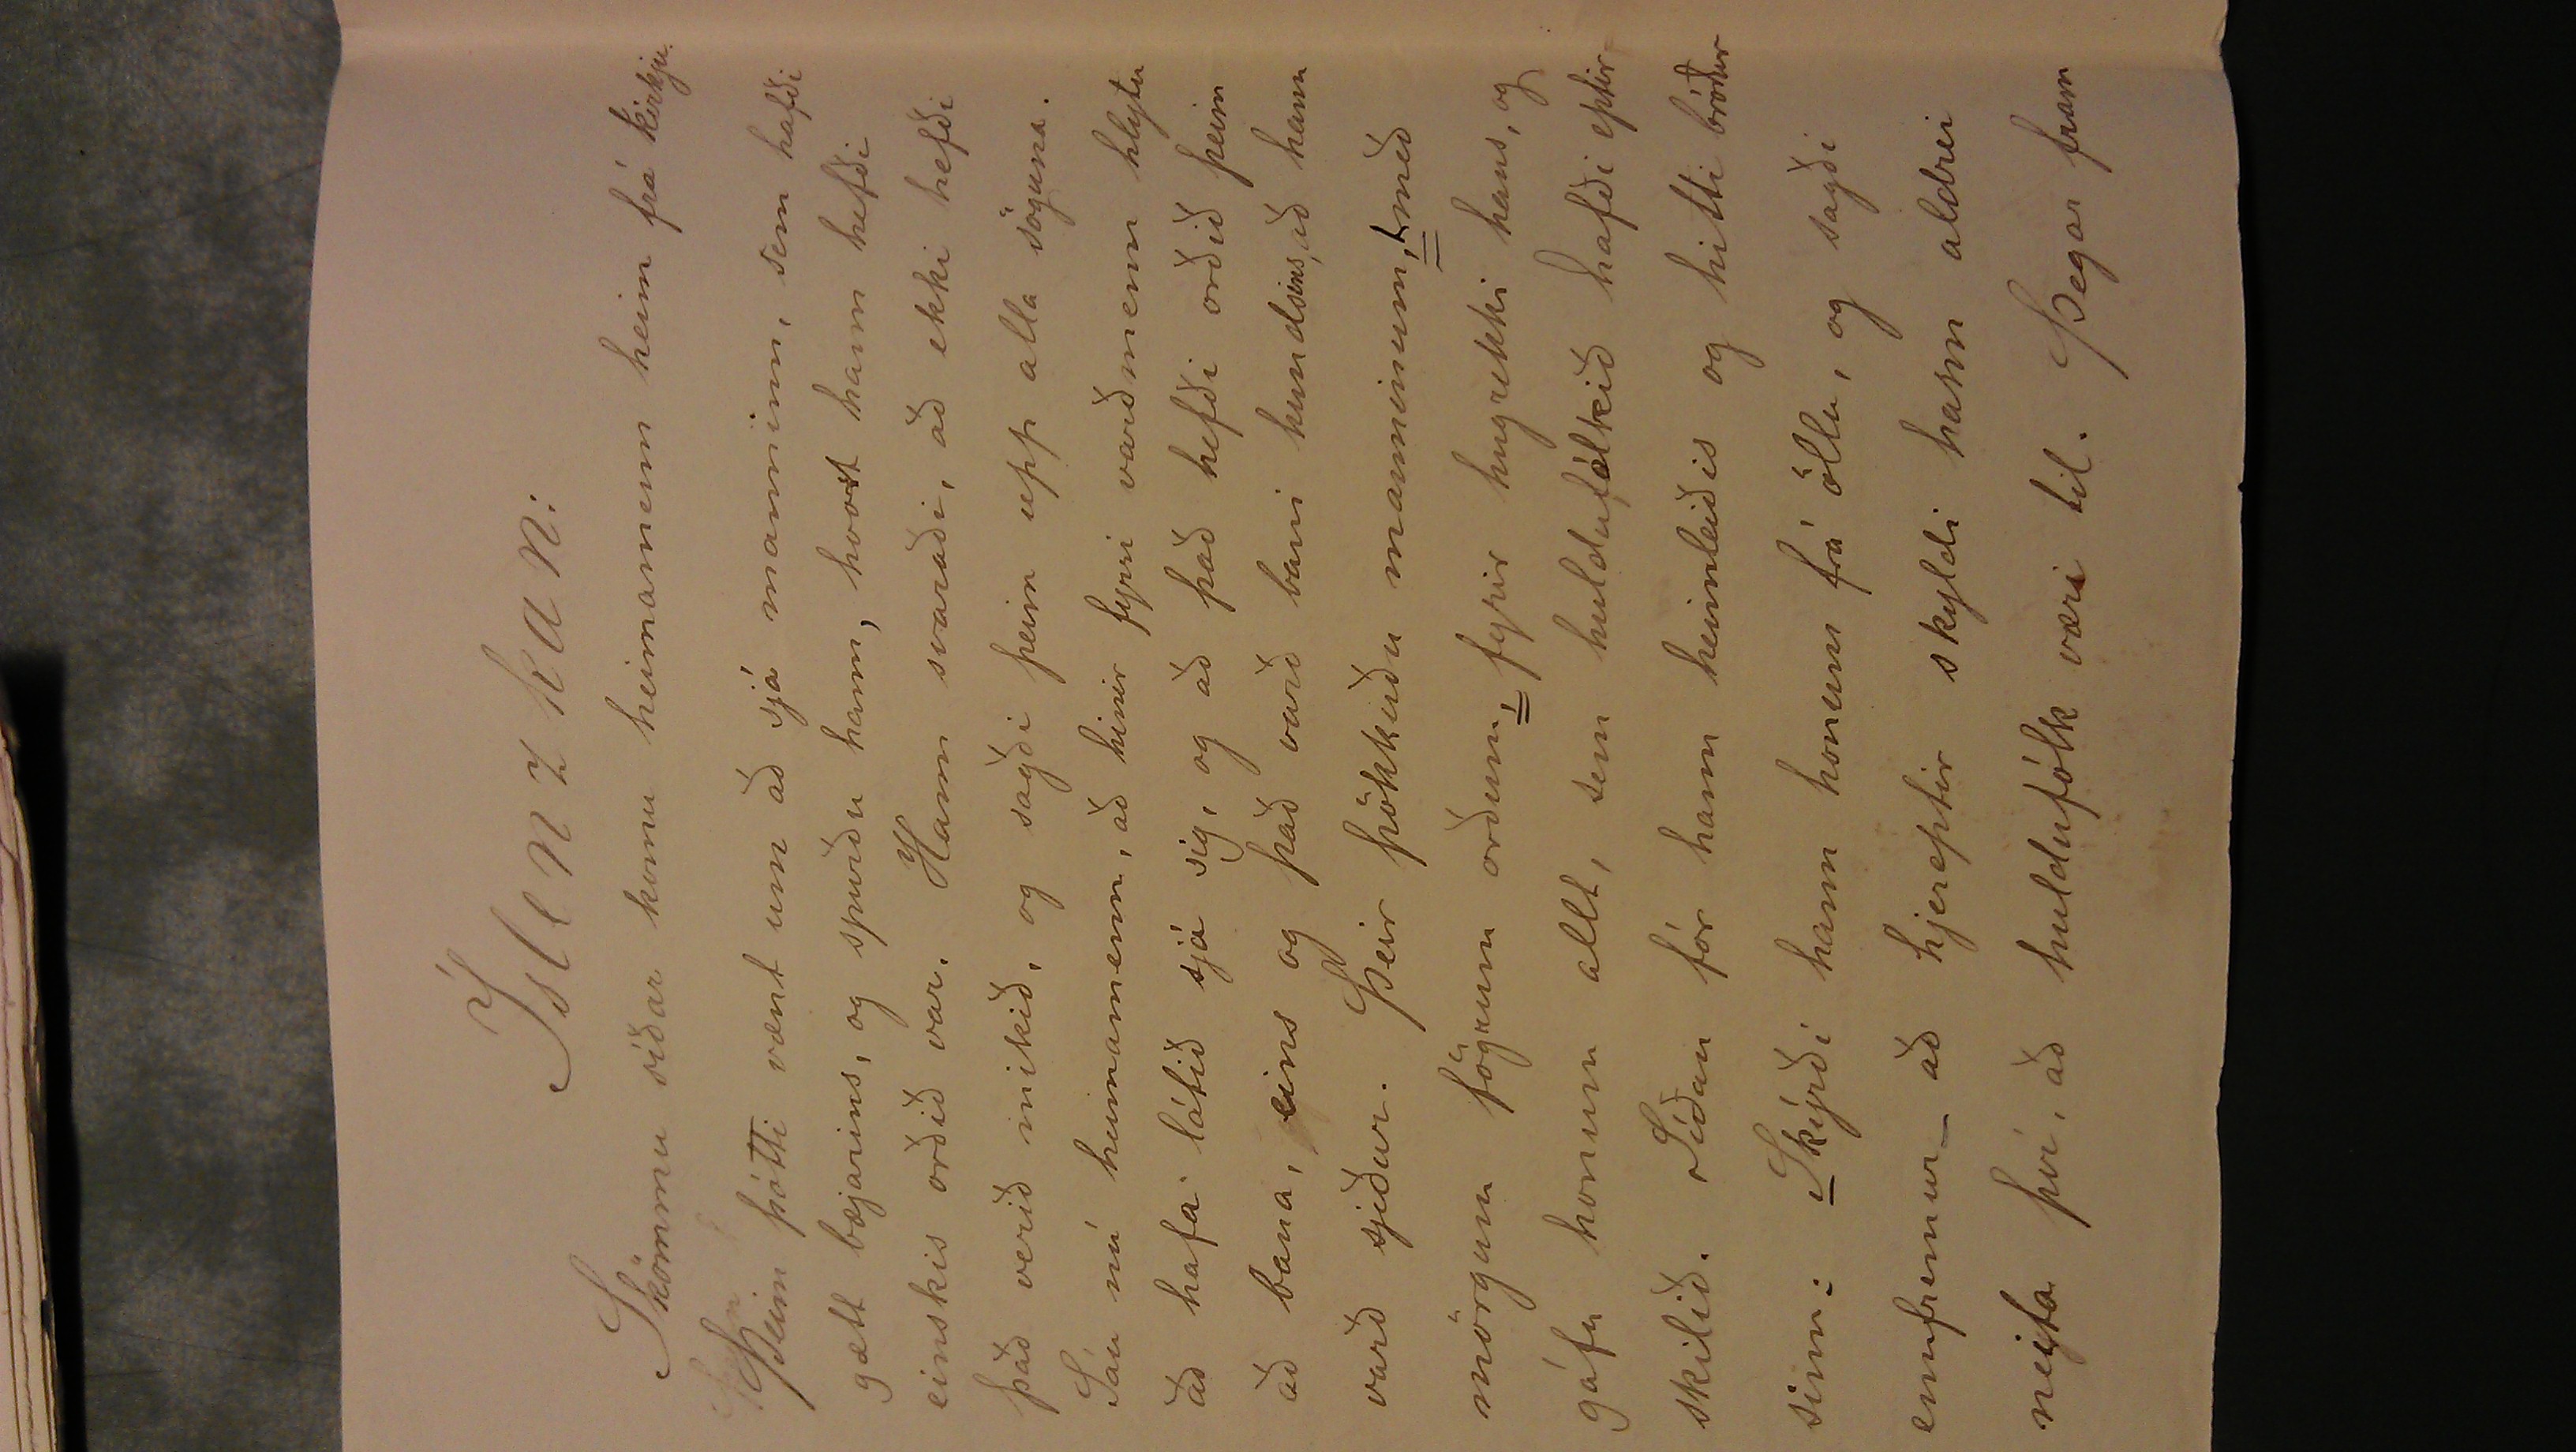 Íslenzkan:
Skömmu síðar komu heimamenn heim frá kirkju.
Þeim þótti vænt um að sjá manninn, sem hafði
gætt bæjarins, og spurðu hann, hvort hann hefði
einskis orðið var. Hann svaraði, að ekki hefði
það verið mikið, og sagði þeim upp alla söguna.
Sáu nú heimamenn, að hinir fyrri varðmenn hlytu
að hafa látið sjá sig, og að það hefði orðið þeim
að bana, eins og það varð bani hundsins, að hann
varð sjeður. Þeir þökkuðu manninum, með
mörgum fögrum orðum, fyrir hugrekki hans, og
gáfu honum allt, sem huldufólkið hafði eptir
skilið. Síðan fór hann heimleiðis og hitti bróður
sinn: Skýrði hann honum frá öllu, og sagði
ennfremur_ að hjereptir skyldi hann aldrei
neita því, að huldufólk væri til. Þegar fram